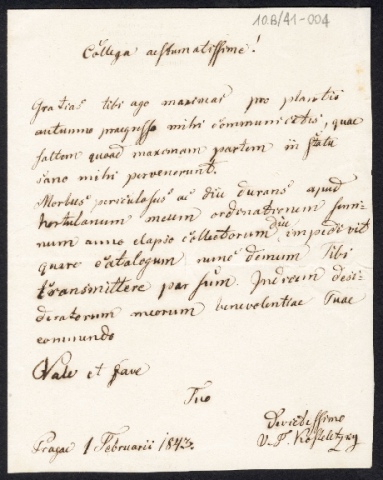 10B/41-004
Collega aestumatissime!
Gratias tibi ago maximas pro plantis
autumno praegresso mihi communicatis, quae
saltem quoad maximam partem in statu
sano mihi pervenerunt.
Morbus periculosus ac diu durans apud
hortulanum meum ordinationem semi-
num anno elapso collectorum diu impedivit
quare Catalogum nunc demum Tibi
transmittere par sum. Indicem desi-
deratorum meorum benevolentiae Tuae
commendo
Vale et fave
Tuo
Pragae 1 Februarii 1843.
V. F. Kosteletzky